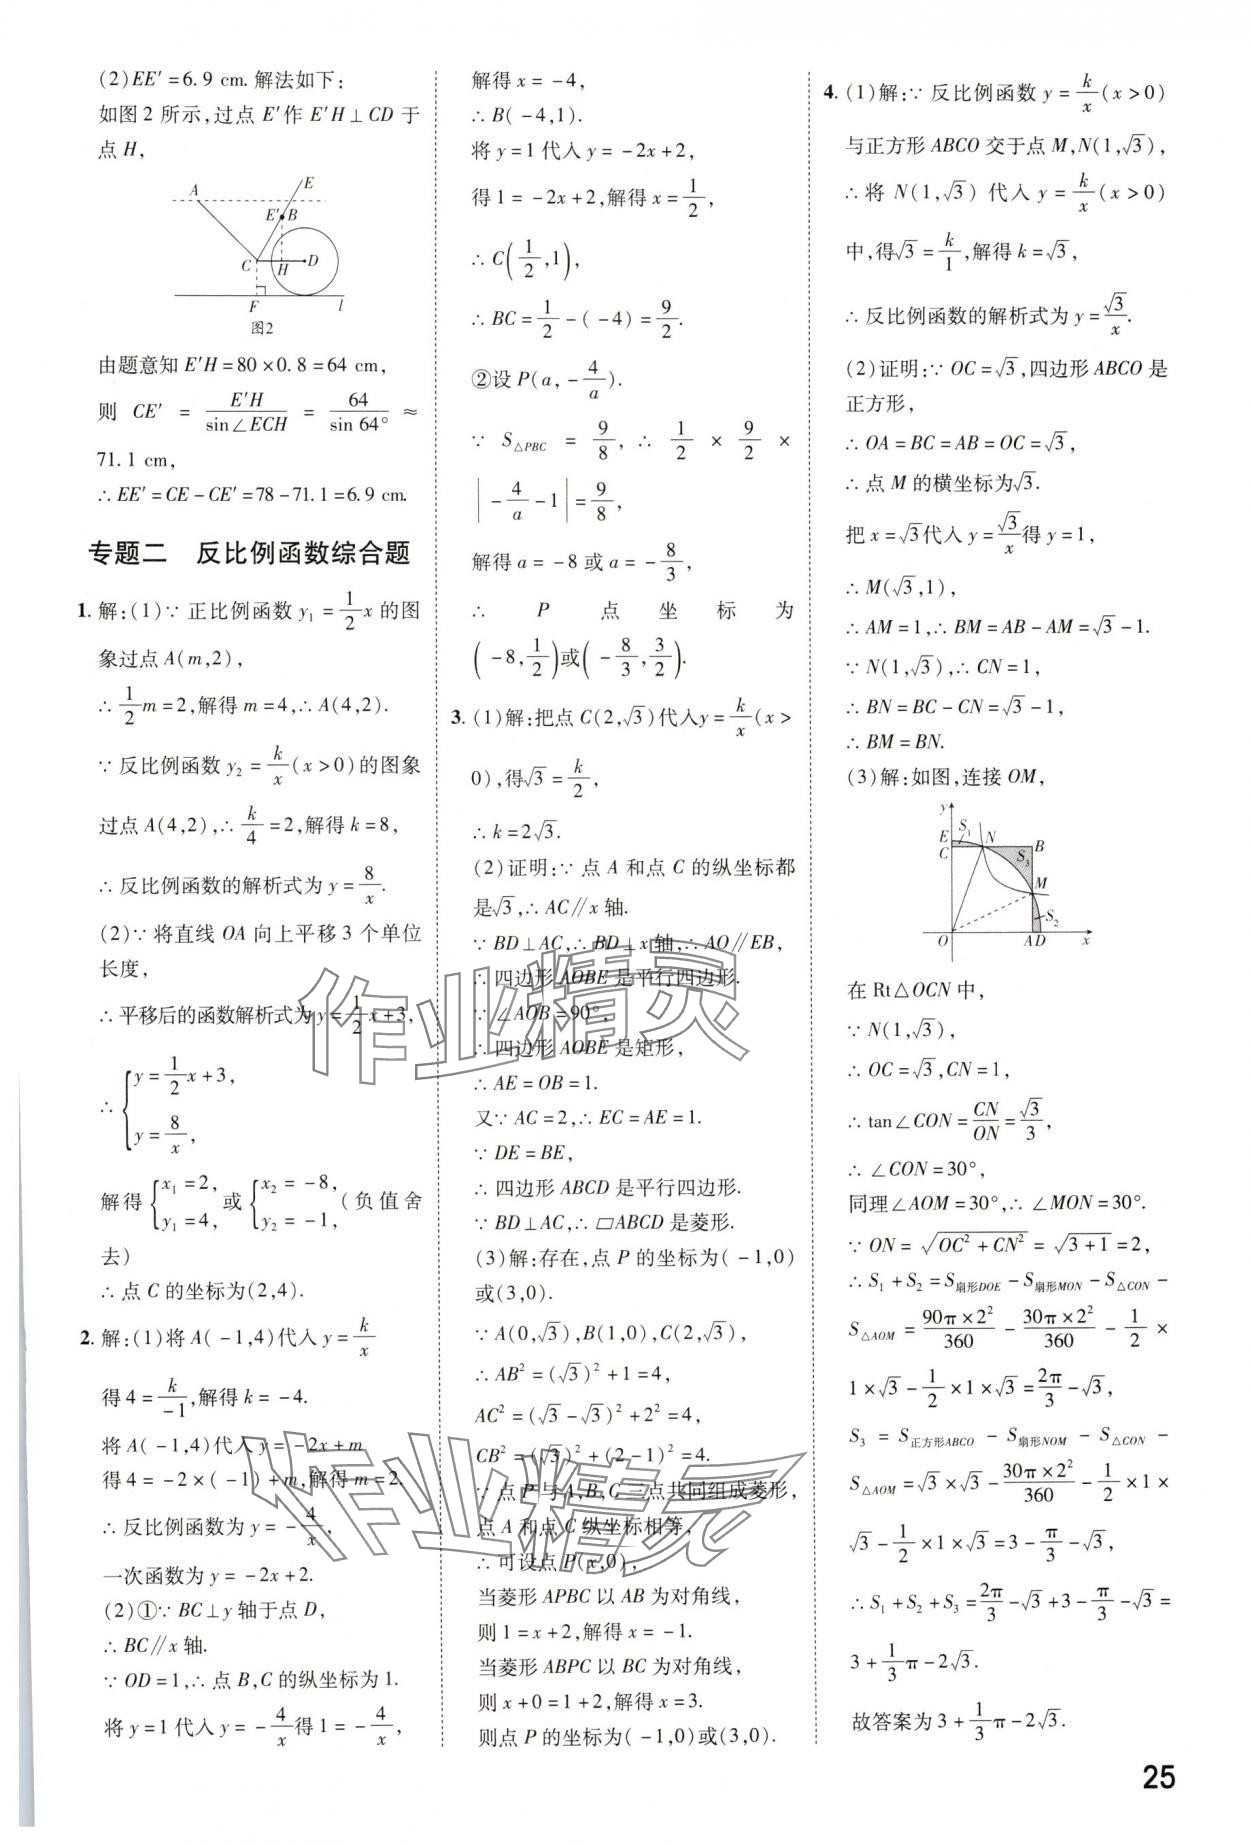 (2)EE′=6.9 cm. 解法如下:
如图2所示,过点E′作E′H⊥CD于
点H,
A
E
E′
B
C
H
D
F
l
图2
由题意知E′H=80×0.8=64 cm,
则 CE′ = E′H/sin∠ECH = 64/sin 64° ≈
71.1 cm,
∴EE′=CE-CE′=78-71.1=6.9 cm.
专题二 反比例函数综合题
1. 解:(1)∵正比例函数y₁=1/2x的图
象过点A(m,2),
∴1/2m=2,解得m=4,∴A(4,2).
∵反比例函数y₂=k/x(x>0)的图象
过点A(4,2),∴k/4=2,解得k=8,
∴反比例函数的解析式为y=8/x.
(2)∵将直线OA向上平移3个单位
长度,
∴平移后的函数解析式为y=1/2x+3,
∴{y=1/2x+3,
y=8/x,
解得{x₁=2, y₁=4,或{x₂=-8, y₂=-1,(负值舍
去)
∴点C的坐标为(2,4).
2. 解:(1)将A(-1,4)代入y=k/x
得4=k/-1,解得k=-4.
将A(-1,4)代入y=-2x+m
得4=-2×(-1)+m,解得m=2.
∴反比例函数为y=-4/x,
一次函数为y=-2x+2.
(2)①∵BC⊥y轴于点D,
∴BC∥x轴.
∵OD=1,∴点B,C的纵坐标为1.
将y=1代入y=-4/x得1=-4/x,
解得x=-4,
∴B(-4,1).
将y=1代入y=-2x+2,
得1=-2x+2,解得x=1/2,
∴C(1/2,1),
∴BC=1/2-(-4)=9/2.
②设P(a,-4/a).
∵ S△PBC = 9/8,∴ 1/2 × 9/2 ×
|-4/a-1|=9/8,
解得a=-8或a=-8/3,
∴ P 点 坐 标 为
(-8,1/2)或(-8/3,3/2).
3. (1)解:把点C(2,√3)代入y=k/x(x>
0),得√3=k/2,
∴k=2√3.
(2)证明:∵点A和点C的纵坐标都
是√3,∴AC∥x轴.
∵BD⊥AC,∴BD⊥x轴,∴AO∥EB,
∴四边形AOBE是平行四边形.
∵∠AOB=90°,
∴四边形AOBE是矩形,
∴AE=OB=1.
又∵AC=2,∴EC=AE=1.
∵DE=BE,
∴四边形ABCD是平行四边形.
∵BD⊥AC,∴▱ABCD是菱形.
(3)解:存在,点P的坐标为(-1,0)
或(3,0).
∵A(0,√3),B(1,0),C(2,√3),
∴AB²=(√3)²+1=4,
AC²=(√3-√3)²+2²=4,
CB²=(√3)²+(2-1)²=4.
∵点P与A,B,C三点共同组成菱形,
点A和点C纵坐标相等,
∴可设点P(x,0),
当菱形APBC以AB为对角线,
则1=x+2,解得x=-1.
当菱形ABPC以BC为对角线,
则x+0=1+2,解得x=3.
则点P的坐标为(-1,0)或(3,0).
4. (1)解:∵反比例函数y=k/x(x>0)
与正方形ABCO交于点M,N(1,√3),
∴将N(1,√3)代入y=k/x(x>0)
中,得√3=k/1,解得k=√3,
∴反比例函数的解析式为y=√3/x.
(2)证明:∵OC=√3,四边形ABCO是
正方形,
∴OA=BC=AB=OC=√3,
∴点M的横坐标为√3.
把x=√3代入y=√3/x得y=1,
∴M(√3,1),
∴AM=1,∴BM=AB-AM=√3-1.
∵N(1,√3),∴CN=1,
∴BN=BC-CN=√3-1,
∴BM=BN.
(3)解:如图,连接OM,
y
E
S₁
N
C
B
S₃
M
S₂
O
A
D
x
在Rt△OCN中,
∵N(1,√3),
∴OC=√3,CN=1,
∴tan∠CON=CN/ON=√3/3,
∴∠CON=30°,
同理∠AOM=30°,∴∠MON=30°.
∵ON=√(OC²+CN²)=√(3+1)=2,
∴S₁+S₂=S扇形DOE-S扇形MON-S△CON-
S△AOM=90π×2²/360-30π×2²/360-1/2×
1×√3-1/2×1×√3=2π/3-√3,
S₃=S正方形ABCO-S扇形NOM-S△CON-
S△AOM=√3×√3-30π×2²/360-1/2×1×
√3-1/2×1×√3=3-π/3-√3,
∴S₁+S₂+S₃=2π/3-√3+3-π/3-√3=
3+1/3π-2√3.
故答案为3+1/3π-2√3.
作业精灵
作业精灵
25